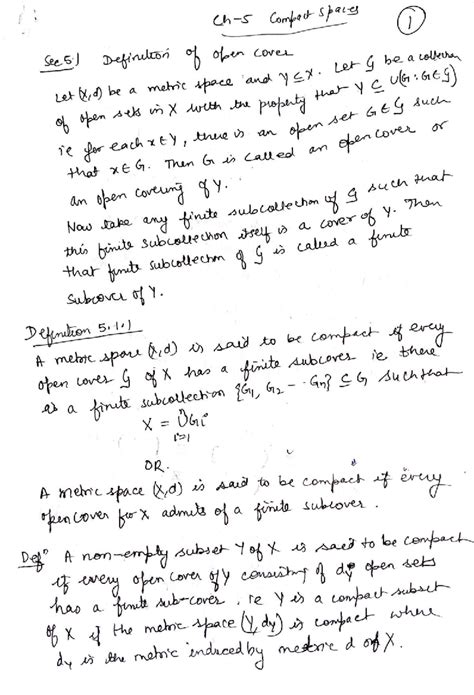 Ch-5 Compact Spaces
1
Sec 5.1 Definition of open cover
Let (X,d) be a metric space and Y ⊆ X. Let G be a collection
of open sets in X with the property that Y ⊆ ∪{G : G ∈ G}
ie for each x ∈ Y, there is an open set G ∈ G such
that x ∈ G. Then G is called an open cover or
an open covering of Y.
Now take any finite subcollection of G such that
this finite subcollection itself is a cover of Y. Then
that finite subcollection of G is called a finite
subcover of Y.
Definition 5.1.1
A metric space (X,d) is said to be compact if every
open cover G of X has a finite subcover ie there
is a finite subcollection {G1, G2 -- Gn} ⊆ G such that
X = ∪Gi
n
i=1
OR.
A metric space (X,d) is said to be compact if every
open cover for X admits of a finite subcover.
Defⁿ A non-empty subset Y of X is said to be compact
if every open cover of Y consisting of dy open sets
has a finite sub-cover, ie Y is a compact subset
of X if the metric space (Y, dy) is compact where
dy is the metric induced by metric d of X.